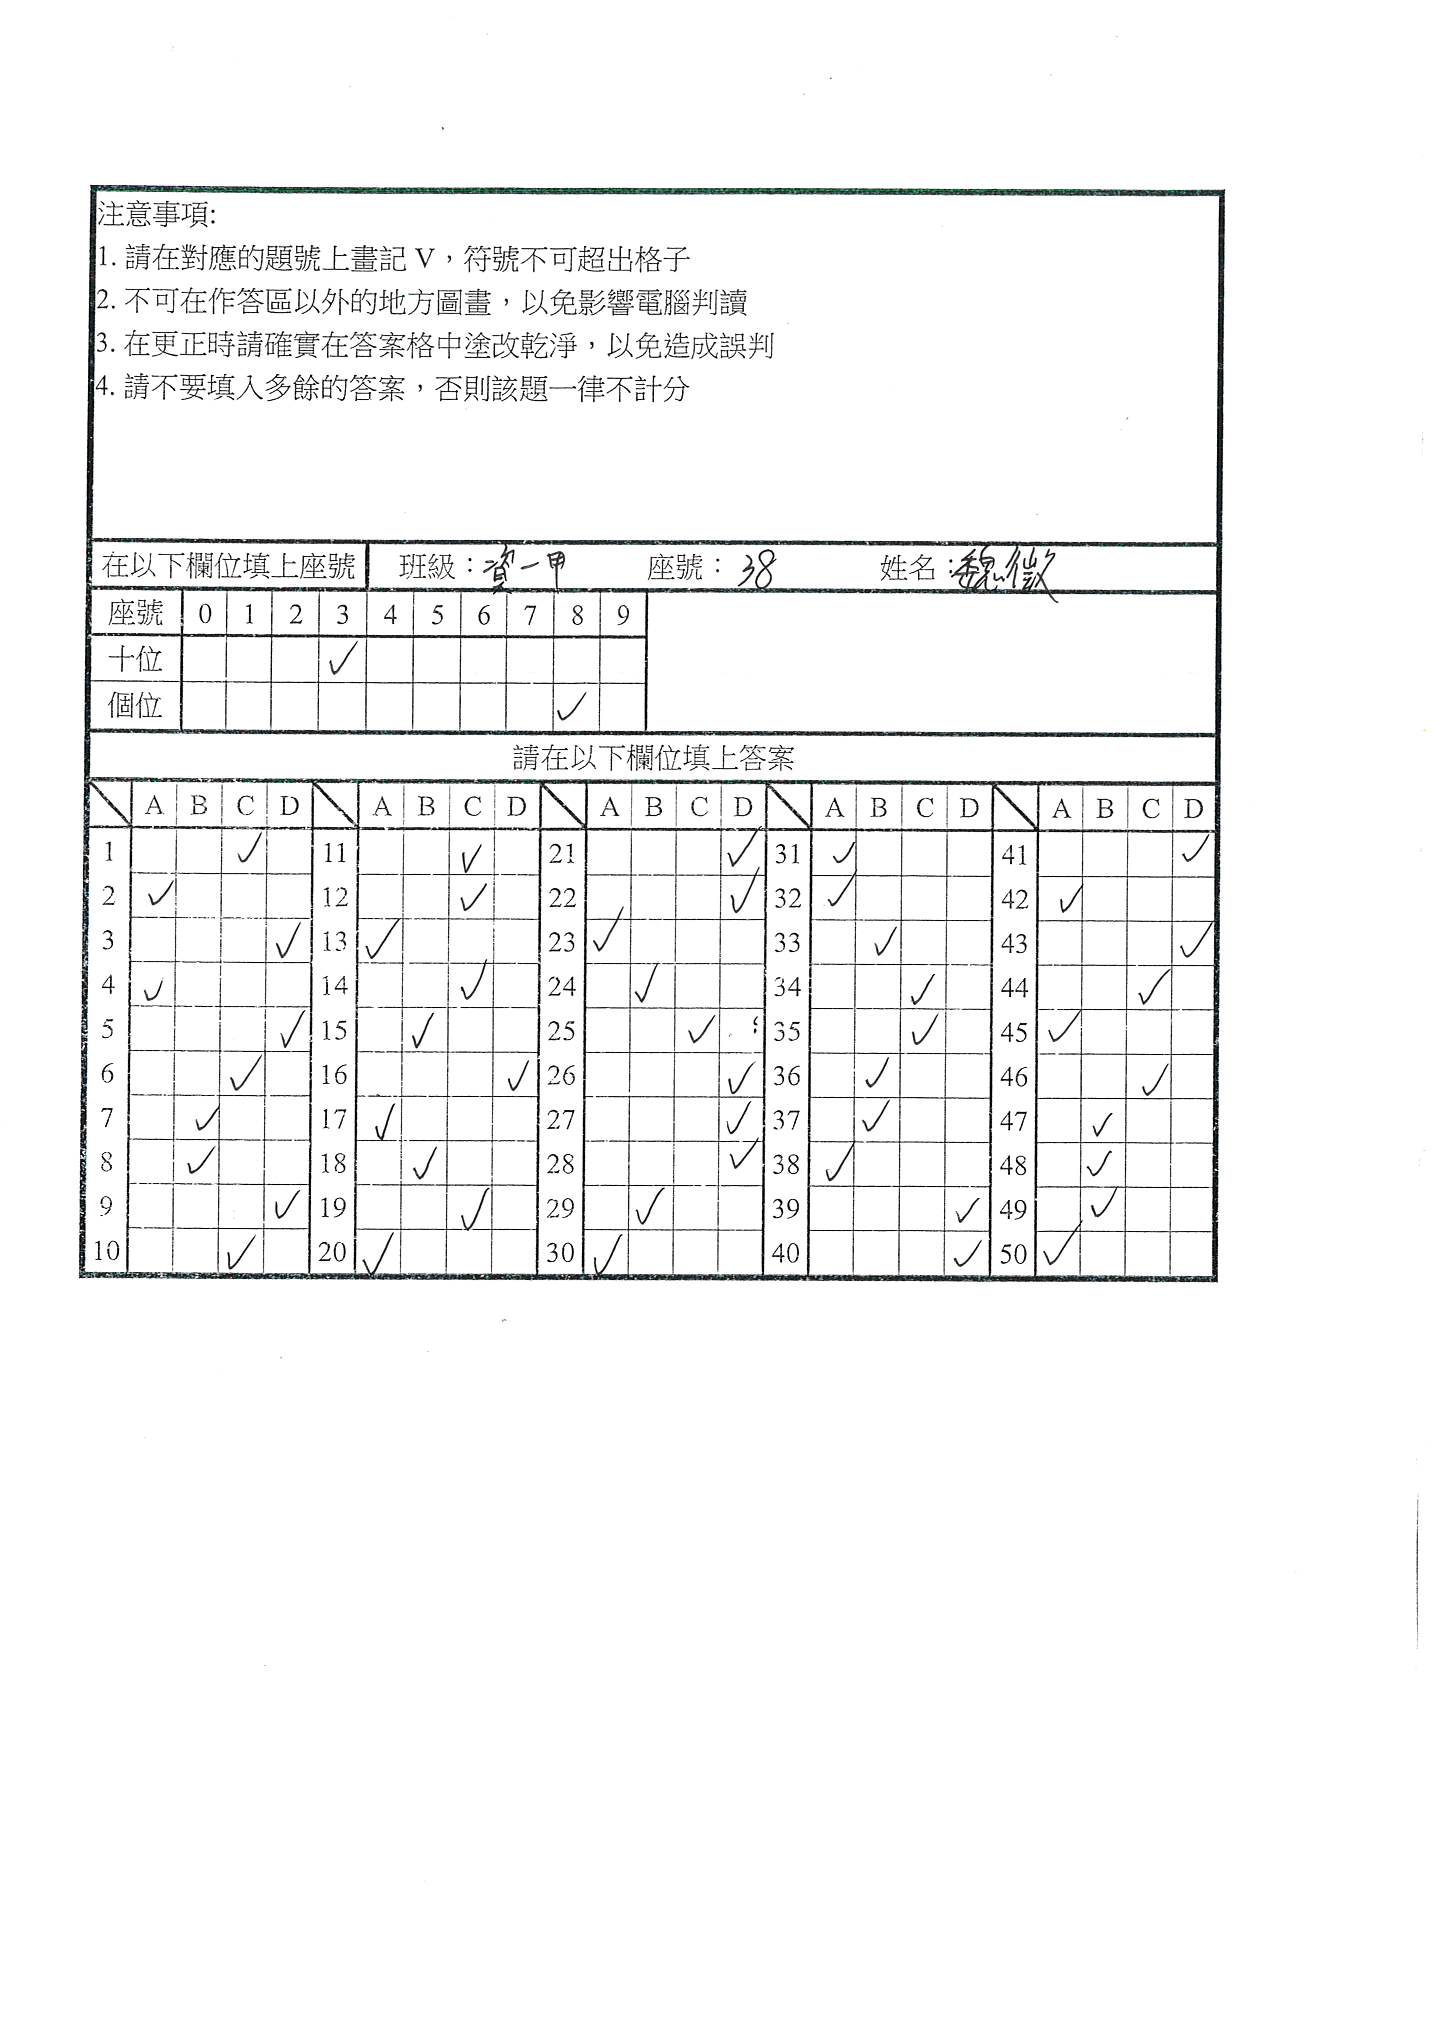 注意事項:
1. 請在對應的題號上畫記 V，符號不可超出格子
2. 不可在作答區以外的地方圖畫，以免影響電腦判讀
3. 在更正時請確實在答案格中塗改乾淨，以免造成誤判
4. 請不要填入多餘的答案，否則該題一律不計分
在以下欄位填上座號 班級：資一甲 座號：38 姓名：魏徵
座號 0 1 2 3 4 5 6 7 8 9
十位 ✓
個位 ✓
請在以下欄位填上答案
A B C D A B C D A B C D A B C D A B C D
1 ✓ 11 ✓ 21 ✓ 31 ✓ 41 ✓
2 ✓ 12 ✓ 22 ✓ 32 ✓ 42 ✓
3 ✓ 13 ✓ 23 ✓ 33 ✓ 43 ✓
4 ✓ 14 ✓ 24 ✓ 34 ✓ 44 ✓
5 ✓ 15 ✓ 25 ✓ 35 ✓ 45 ✓
6 ✓ 16 ✓ 26 ✓ 36 ✓ 46 ✓
7 ✓ 17 ✓ 27 ✓ 37 ✓ 47 ✓
8 ✓ 18 ✓ 28 ✓ 38 ✓ 48 ✓
9 ✓ 19 ✓ 29 ✓ 39 ✓ 49 ✓
10 ✓ 20 ✓ 30 ✓ 40 ✓ 50 ✓